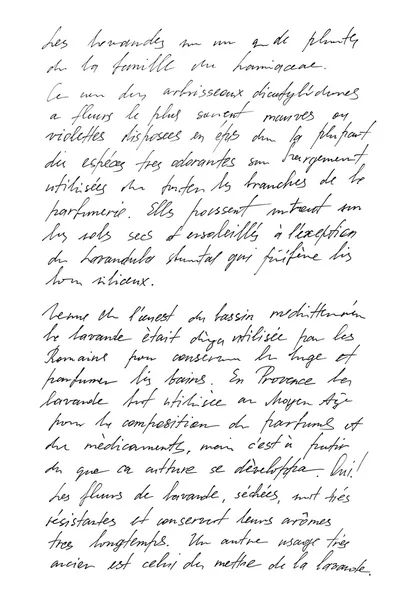 Les lavandes sont un genre de plantes
de la famille des Lamiaceae.
Ce sont des arbrisseaux dicotylédones
a fleurs le plus souvent mauves ou
violettes disposées en épis dont la plupart
des espèces très odorantes sont largement
utilisées dans toutes les branches de la
parfumerie. Elles poussent surtout sur
les sols secs et ensoleillés à l'exception
du Lavandula stoechas qui préfère les
siliceux.
Venue de l'ouest du bassin méditerranéen
la lavande était déja utilisée par les
Romains pour conserver le linge et
parfumer les bains. En Provence la
lavande fut utilisée au Moyen Age
pour la composition de parfums et
de médicaments, mais c'est à partir
du que sa culture se développa. Oui!
Les fleurs de lavande, séchées, sont très
résistantes et conservent leurs arômes
tres longtemps. Un autre usage très
ancien est celui de mettre de la lavande.